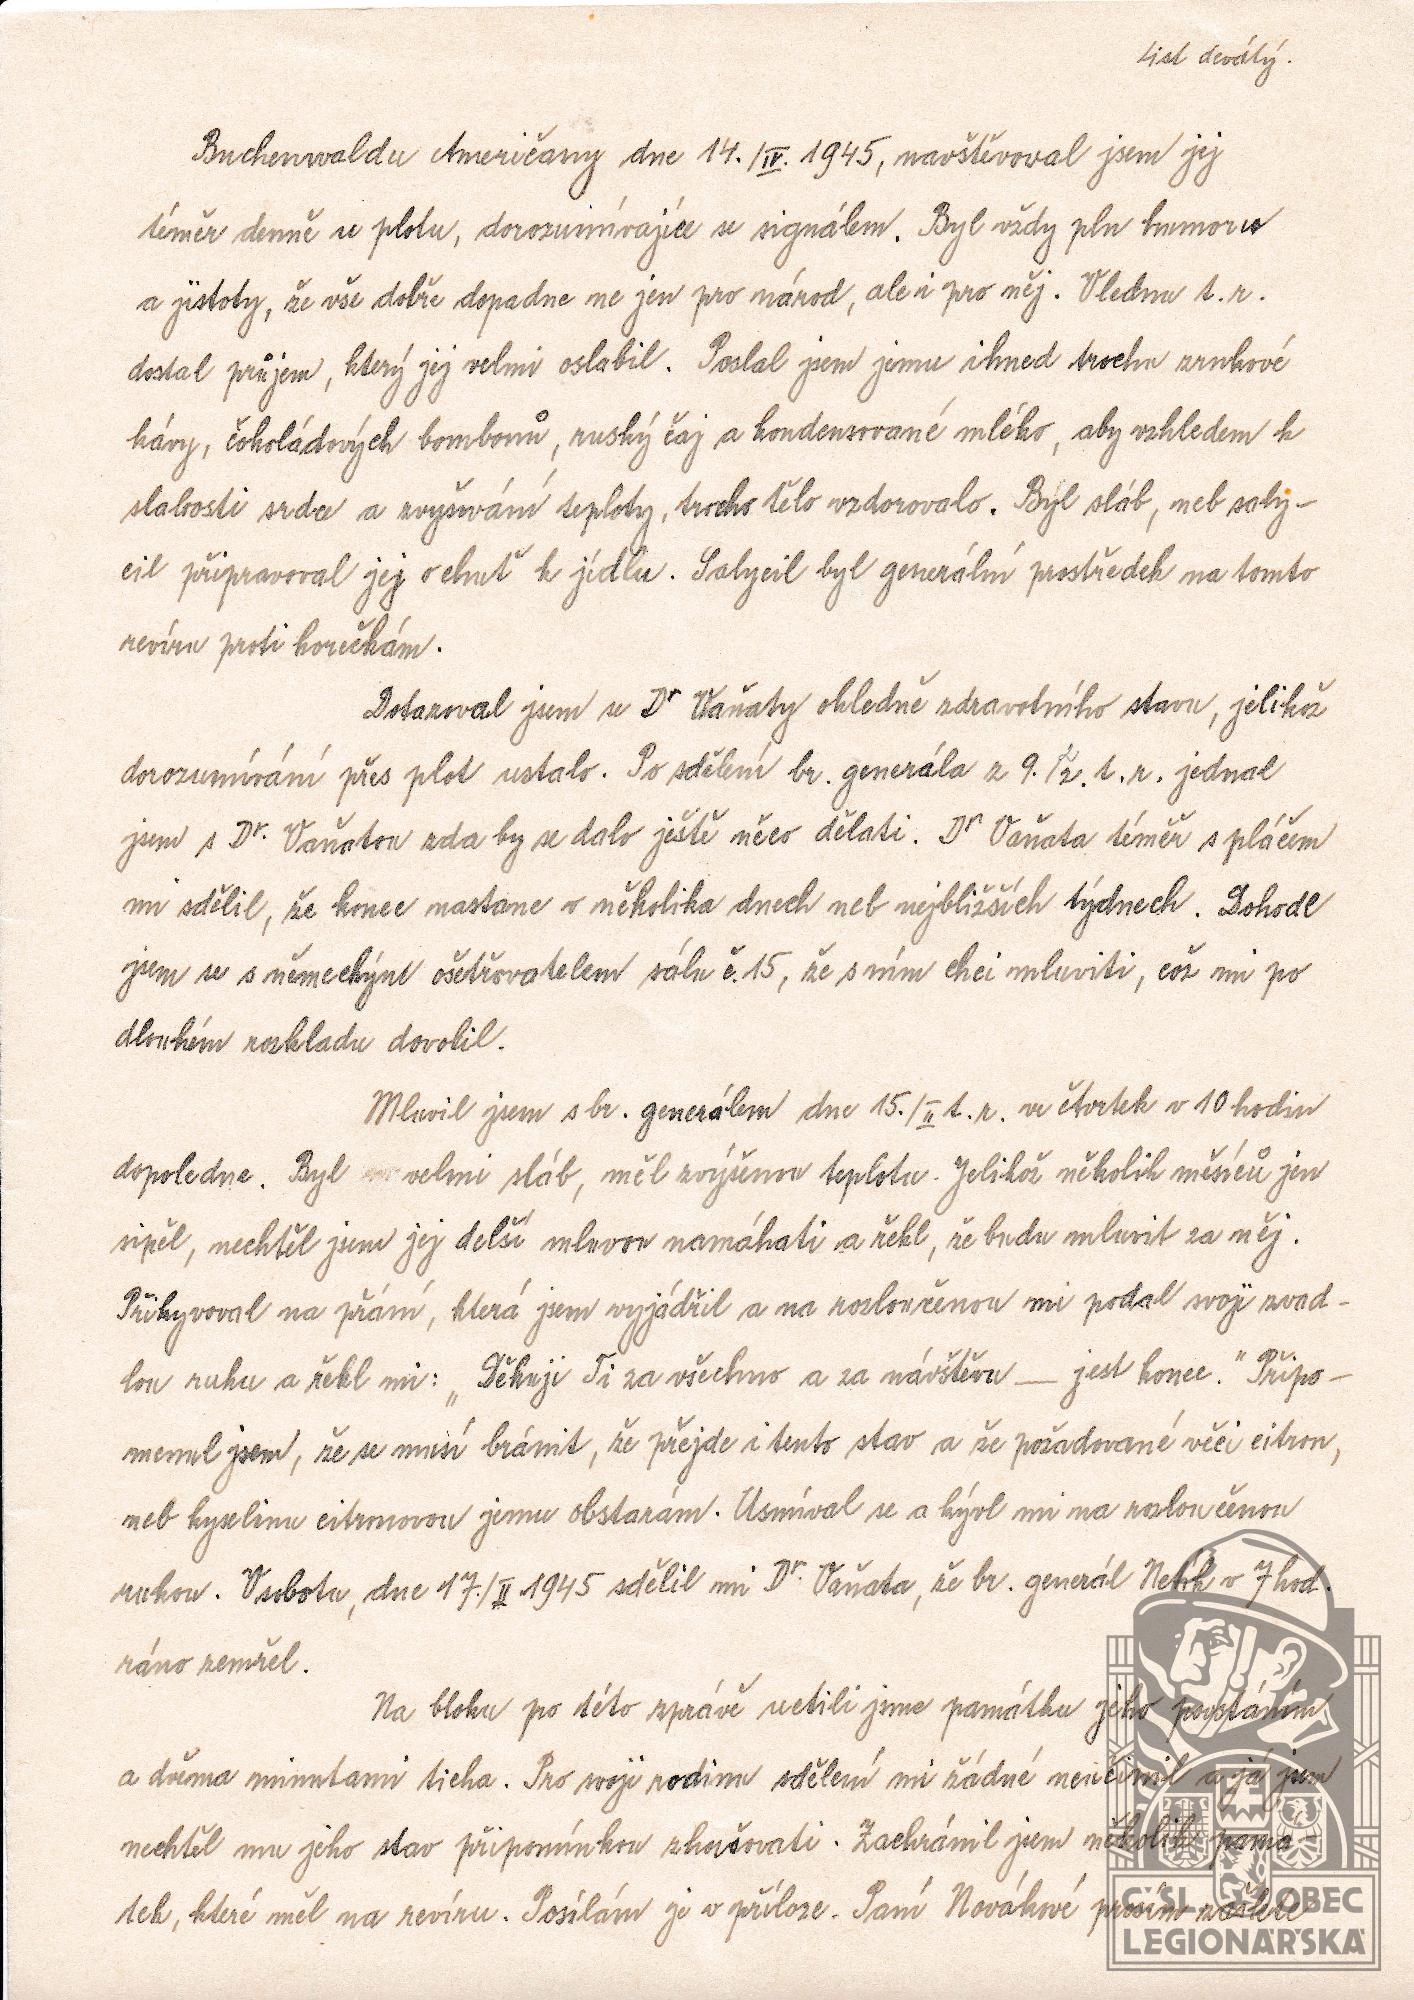 List devátý.
Buchenwaldu Američany dne 14./IV. 1945, navštěvoval jsem jej
téměr denně u plotu, dorozumívajíce se signálem. Byl vždy pln humoru
a jistoty, že vše dobře dopadne ne jen pro národ, ale i pro něj. V lednu t.r.
dostal průjem, který jej velmi oslabil. Poslal jsem jemu ihned trochu zrnkové
kávy, čokoládových bombonů, ruský čaj a kondensované mléko, aby vzhledem k
slabosti srdce a zvyšování teploty, trocho tělo vzdorovalo. Byl sláb, neb saly-
cil připravoval jej o chuť k jídlu. Salycil byl generální prostředek na tomto
revíru proti horečkám.
Dotazoval jsem se Dr Vaňaty ohledně zdravotního stavu, jelikož
dorozumívání přes plot ustalo. Po sdělení br. generála z 9./2. t.r. jednal
jsem s Dr. Vaňatou zda by se dalo ještě něco dělati. Dr Vaňata téměř s pláčem
mi sdělil, že konec nastane v několika dnech neb nejbližších týdnech. Dohodl
jsem se s německým ošetřovatelem sálu č. 15, že s ním chci mluviti, což mi po
dlouhém rozkladu dovolil.
Mluvil jsem s br. generálem dne 15./II t.r. ve čtvrtek v 10 hodin
dopoledne. Byl velmi sláb, měl zvýšenou teplotu. Jelikož několik měsíců jen
sipěl, nechtěl jsem jej delší mluvou namáhati a řekl, že budu mluvit za něj.
Přikyvoval na přání, která jsem vyjádřil a na rozloučenou mi podal svoji zvad-
lou ruku a řekl mi: „Děkuji Ti za všechno a za návštěvu — jest konec." Připo-
menul jsem, že se musí bránit, že přejde i tento stav a že požadované věci citron,
neb kyselinu citronovou jemu obstarám. Usmíval se a kývl mi na rozloučenou
rukou. V sobotu, dne 17./II 1945 sdělil mi Dr. Vaňata, že br. generál Nebík v 7 hod.
ráno zemřel.
Na bloku po této zprávě uctili jsme památku jeho povstáním
a dvěma minutami ticha. Pro svoji rodinu sdělení mi žádné neučinil a já jsem
nechtěl mu jeho stav připomínkou zhoršovati. Zachránil jsem několik pamá-
tek, které měl na revíru. Posílám je v příloze. Paní Novákové prosím
ČSL. OBEC
LEGIONÁŘSKÁ